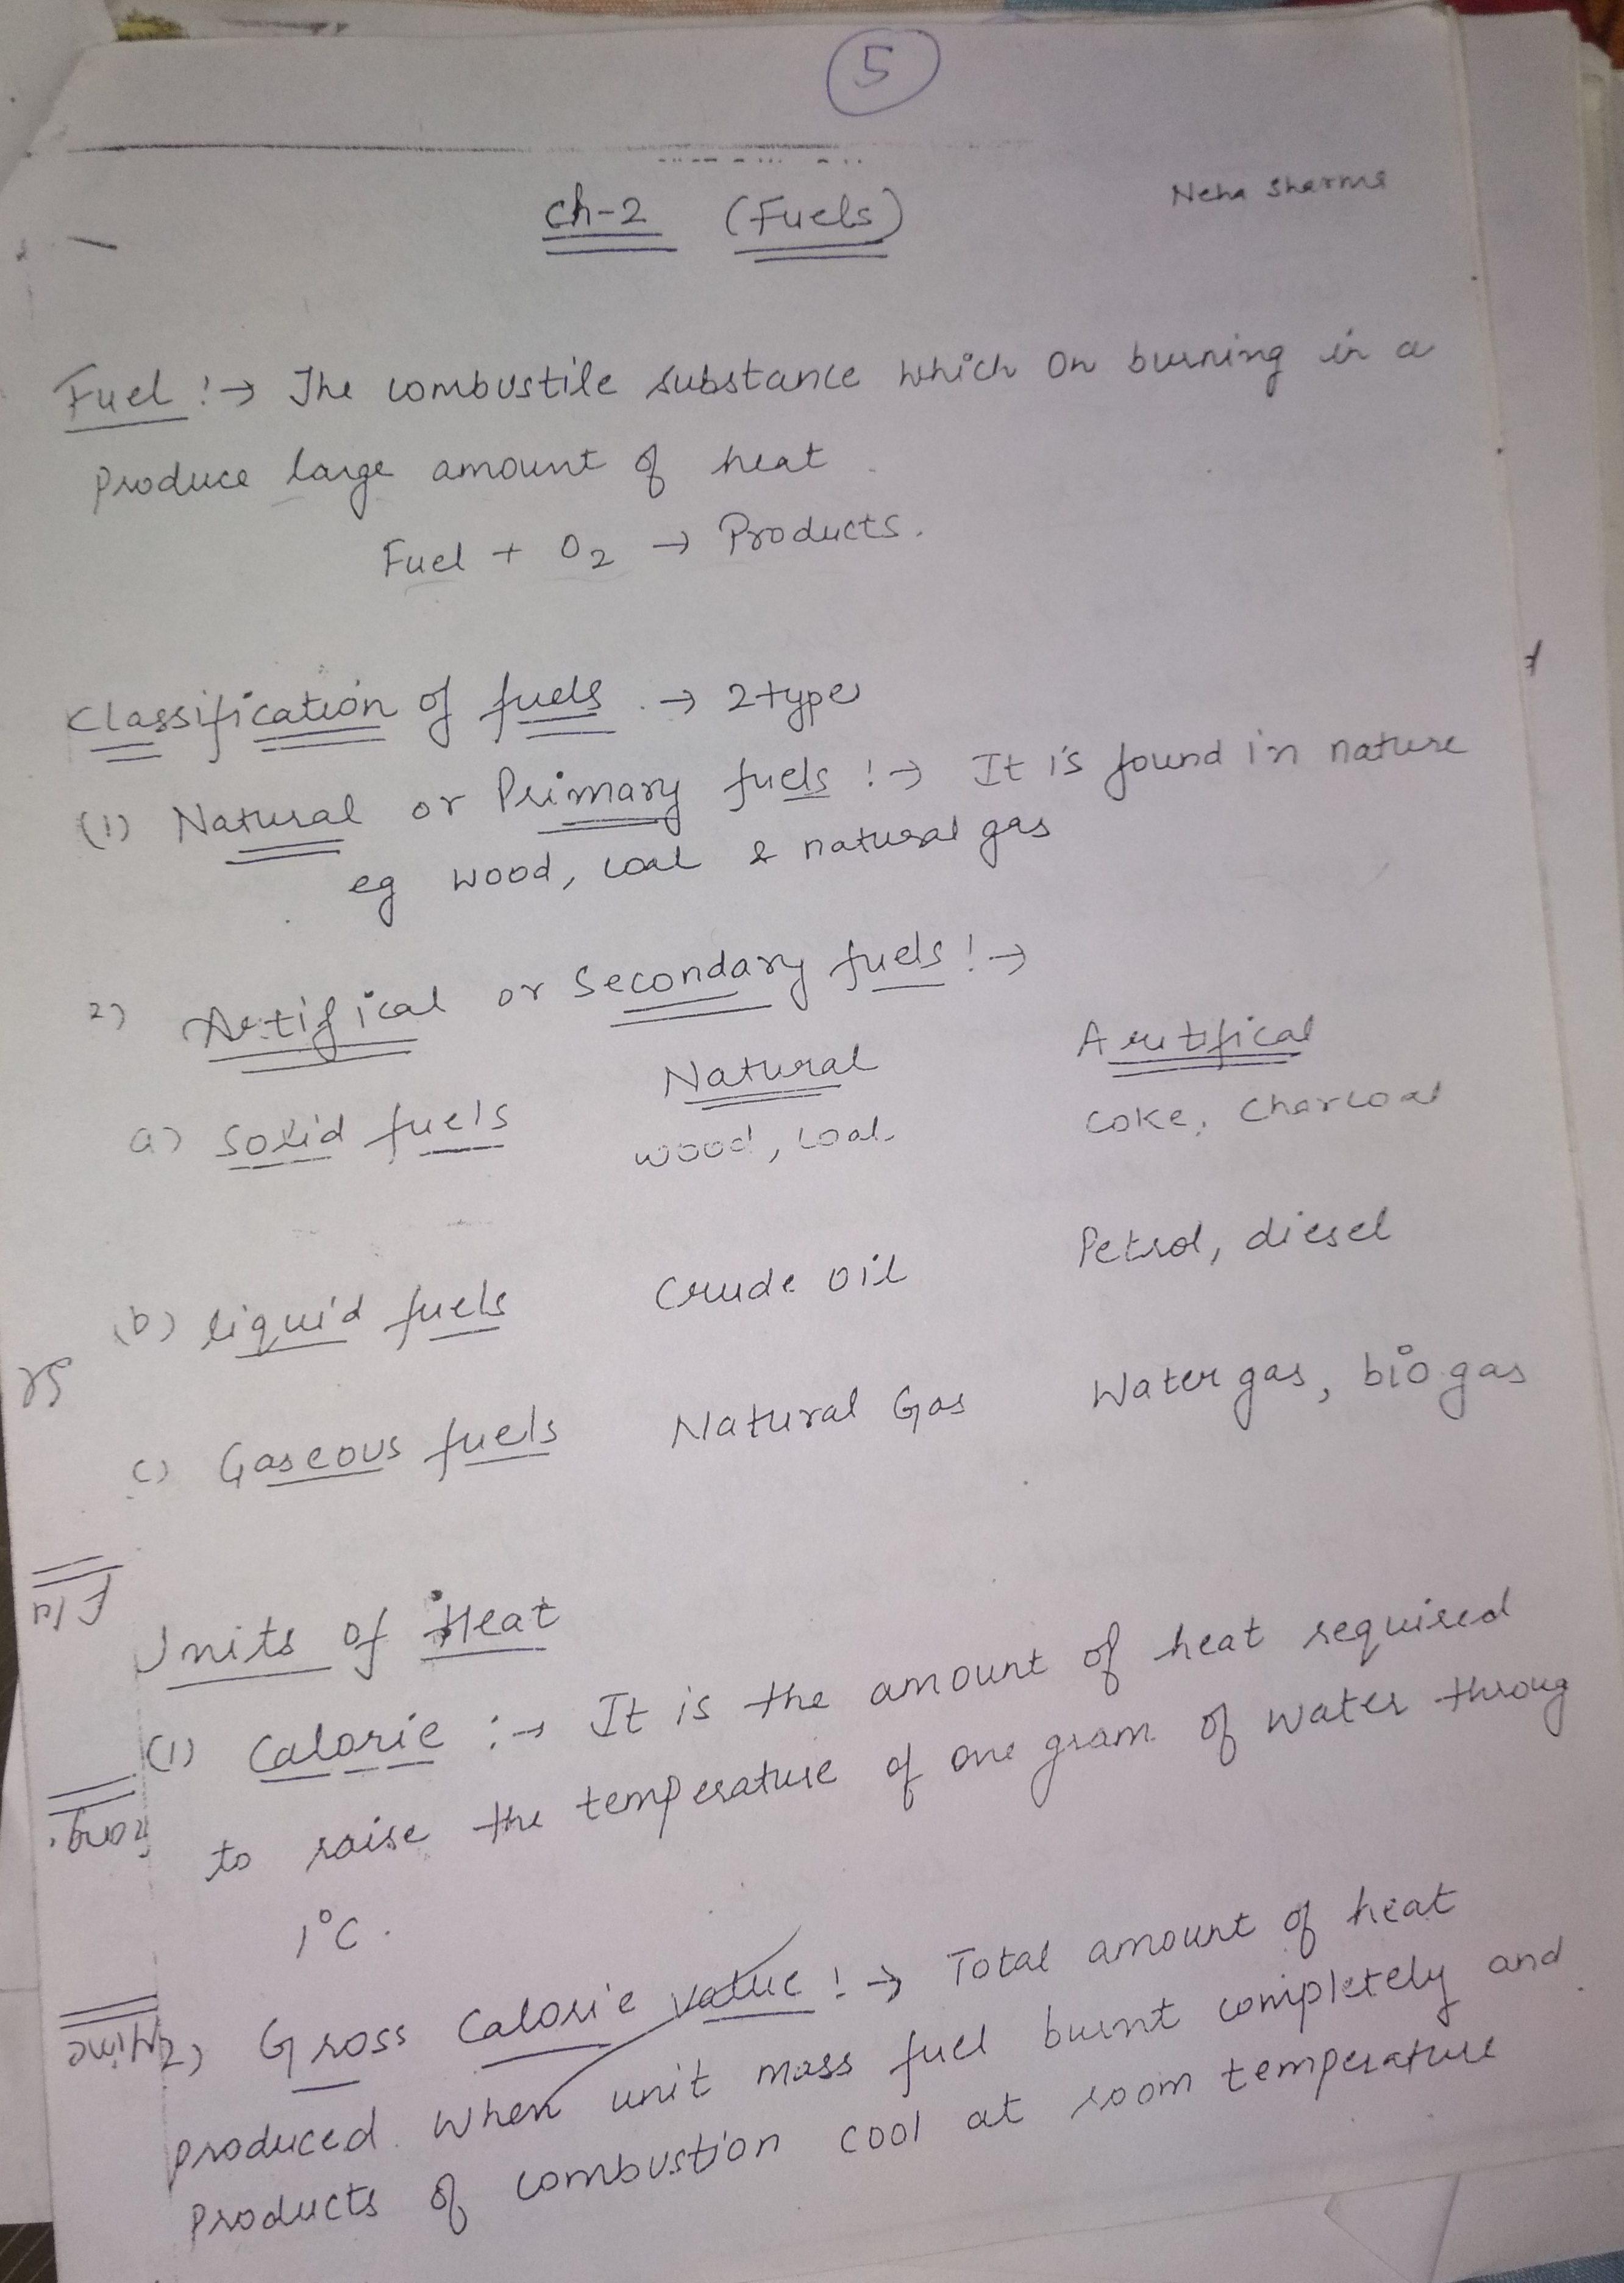 5
Neha Sharma
Ch-2 (Fuels)
Fuel :→ The combustile substance which on burning in a
produce large amount of heat.
Fuel + O2 → Products.
Classification of fuels → 2 types
(1) Natural or Primary fuels :→ It is found in nature
eg wood, coal & natural gas
2) Artifical or Secondary fuels :→
Natural Arutifical
a) Solid fuels wood, coal Coke, Charcoal
(b) liquid fuels Crude oil Petrol, diesel
c) Gaseous fuels Natural Gas Water gas, bio gas
Units of Heat
(1) Calorie :→ It is the amount of heat required
to raise the temperature of one gram of water throug
1°C.
2) Gross Calorie value :→ Total amount of heat
produced when unit mass fuel burnt completely and
products of combustion cool at room temperature